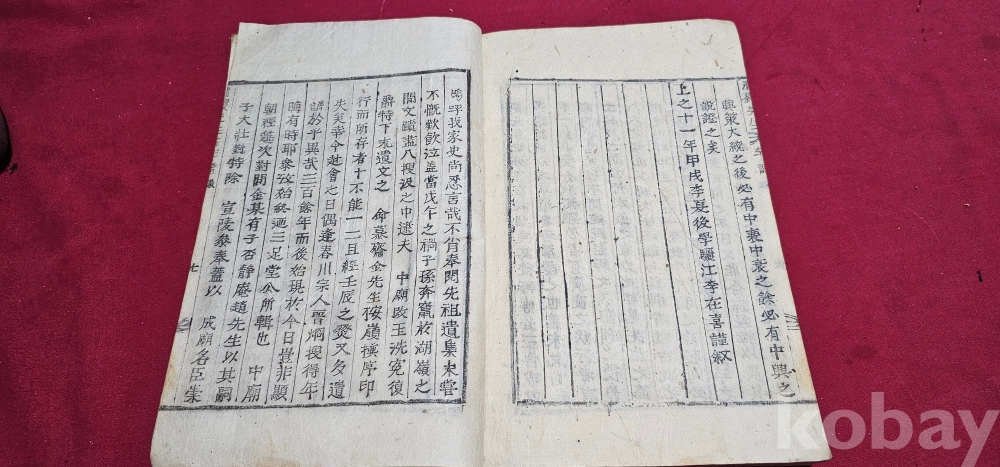 興策大統之後必有中衰中衰之餘必有中興之
說證之矣
上之十一年甲戌季夏後學驪江李在喜謹叙
嗚呼我家史尚忍言哉不肖奉閱先祖遺集未嘗
不慨歎飮泣盖當戊午之禍子孫奔竄於湖嶺之
間文蹟盡入搜汲之中逮夫 中廟改玉洗寃復
爵特下求遺文之 命慕齋金先生按嶺撰序印
行而所存者十不能一二且經壬辰之燹又多遺
失矣幸今赴會之日偶逢春川宗人晉炯搜得年
譜於乎異哉三百餘年而後始現於今日豈非顯
晦有時耶參攷始終迺三足堂公所輯也 中廟
朝經筵次對問金某有子否靜庵趙先生以其嗣
子大壯對特除 宣陵參奉蓋以 成廟名臣柴
七
kobay